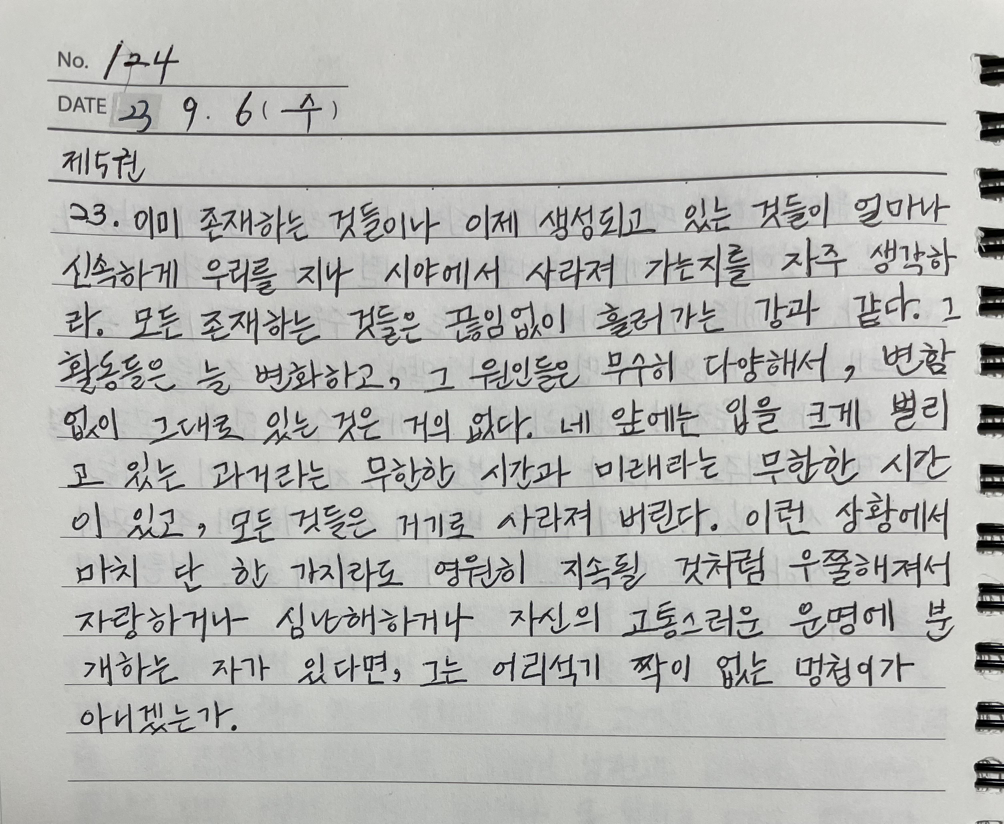 No. 124
DATE 23 9. 6(수)
제5권
23. 이미 존재하는 것들이나 이제 생성되고 있는 것들이 얼마나
신속하게 우리를 지나 시야에서 사라져 가는지를 자주 생각하
라. 모든 존재하는 것들은 끊임없이 흘러가는 강과 같다. 그
활동들은 늘 변화하고, 그 원인들은 무수히 다양해서, 변함
없이 그대로 있는 것은 거의 없다. 네 앞에는 입을 크게 벌리
고 있는 과거라는 무한한 시간과 미래라는 무한한 시간
이 있고, 모든 것들은 거기로 사라져 버린다. 이런 상황에서
마치 단 한 가지라도 영원히 지속될 것처럼 우쭐해져서
자랑하거나 심난해하거나 자신의 고통스러운 운명에 분
개하는 자가 있다면, 그는 어리석기 짝이 없는 멍청이가
아니겠는가.